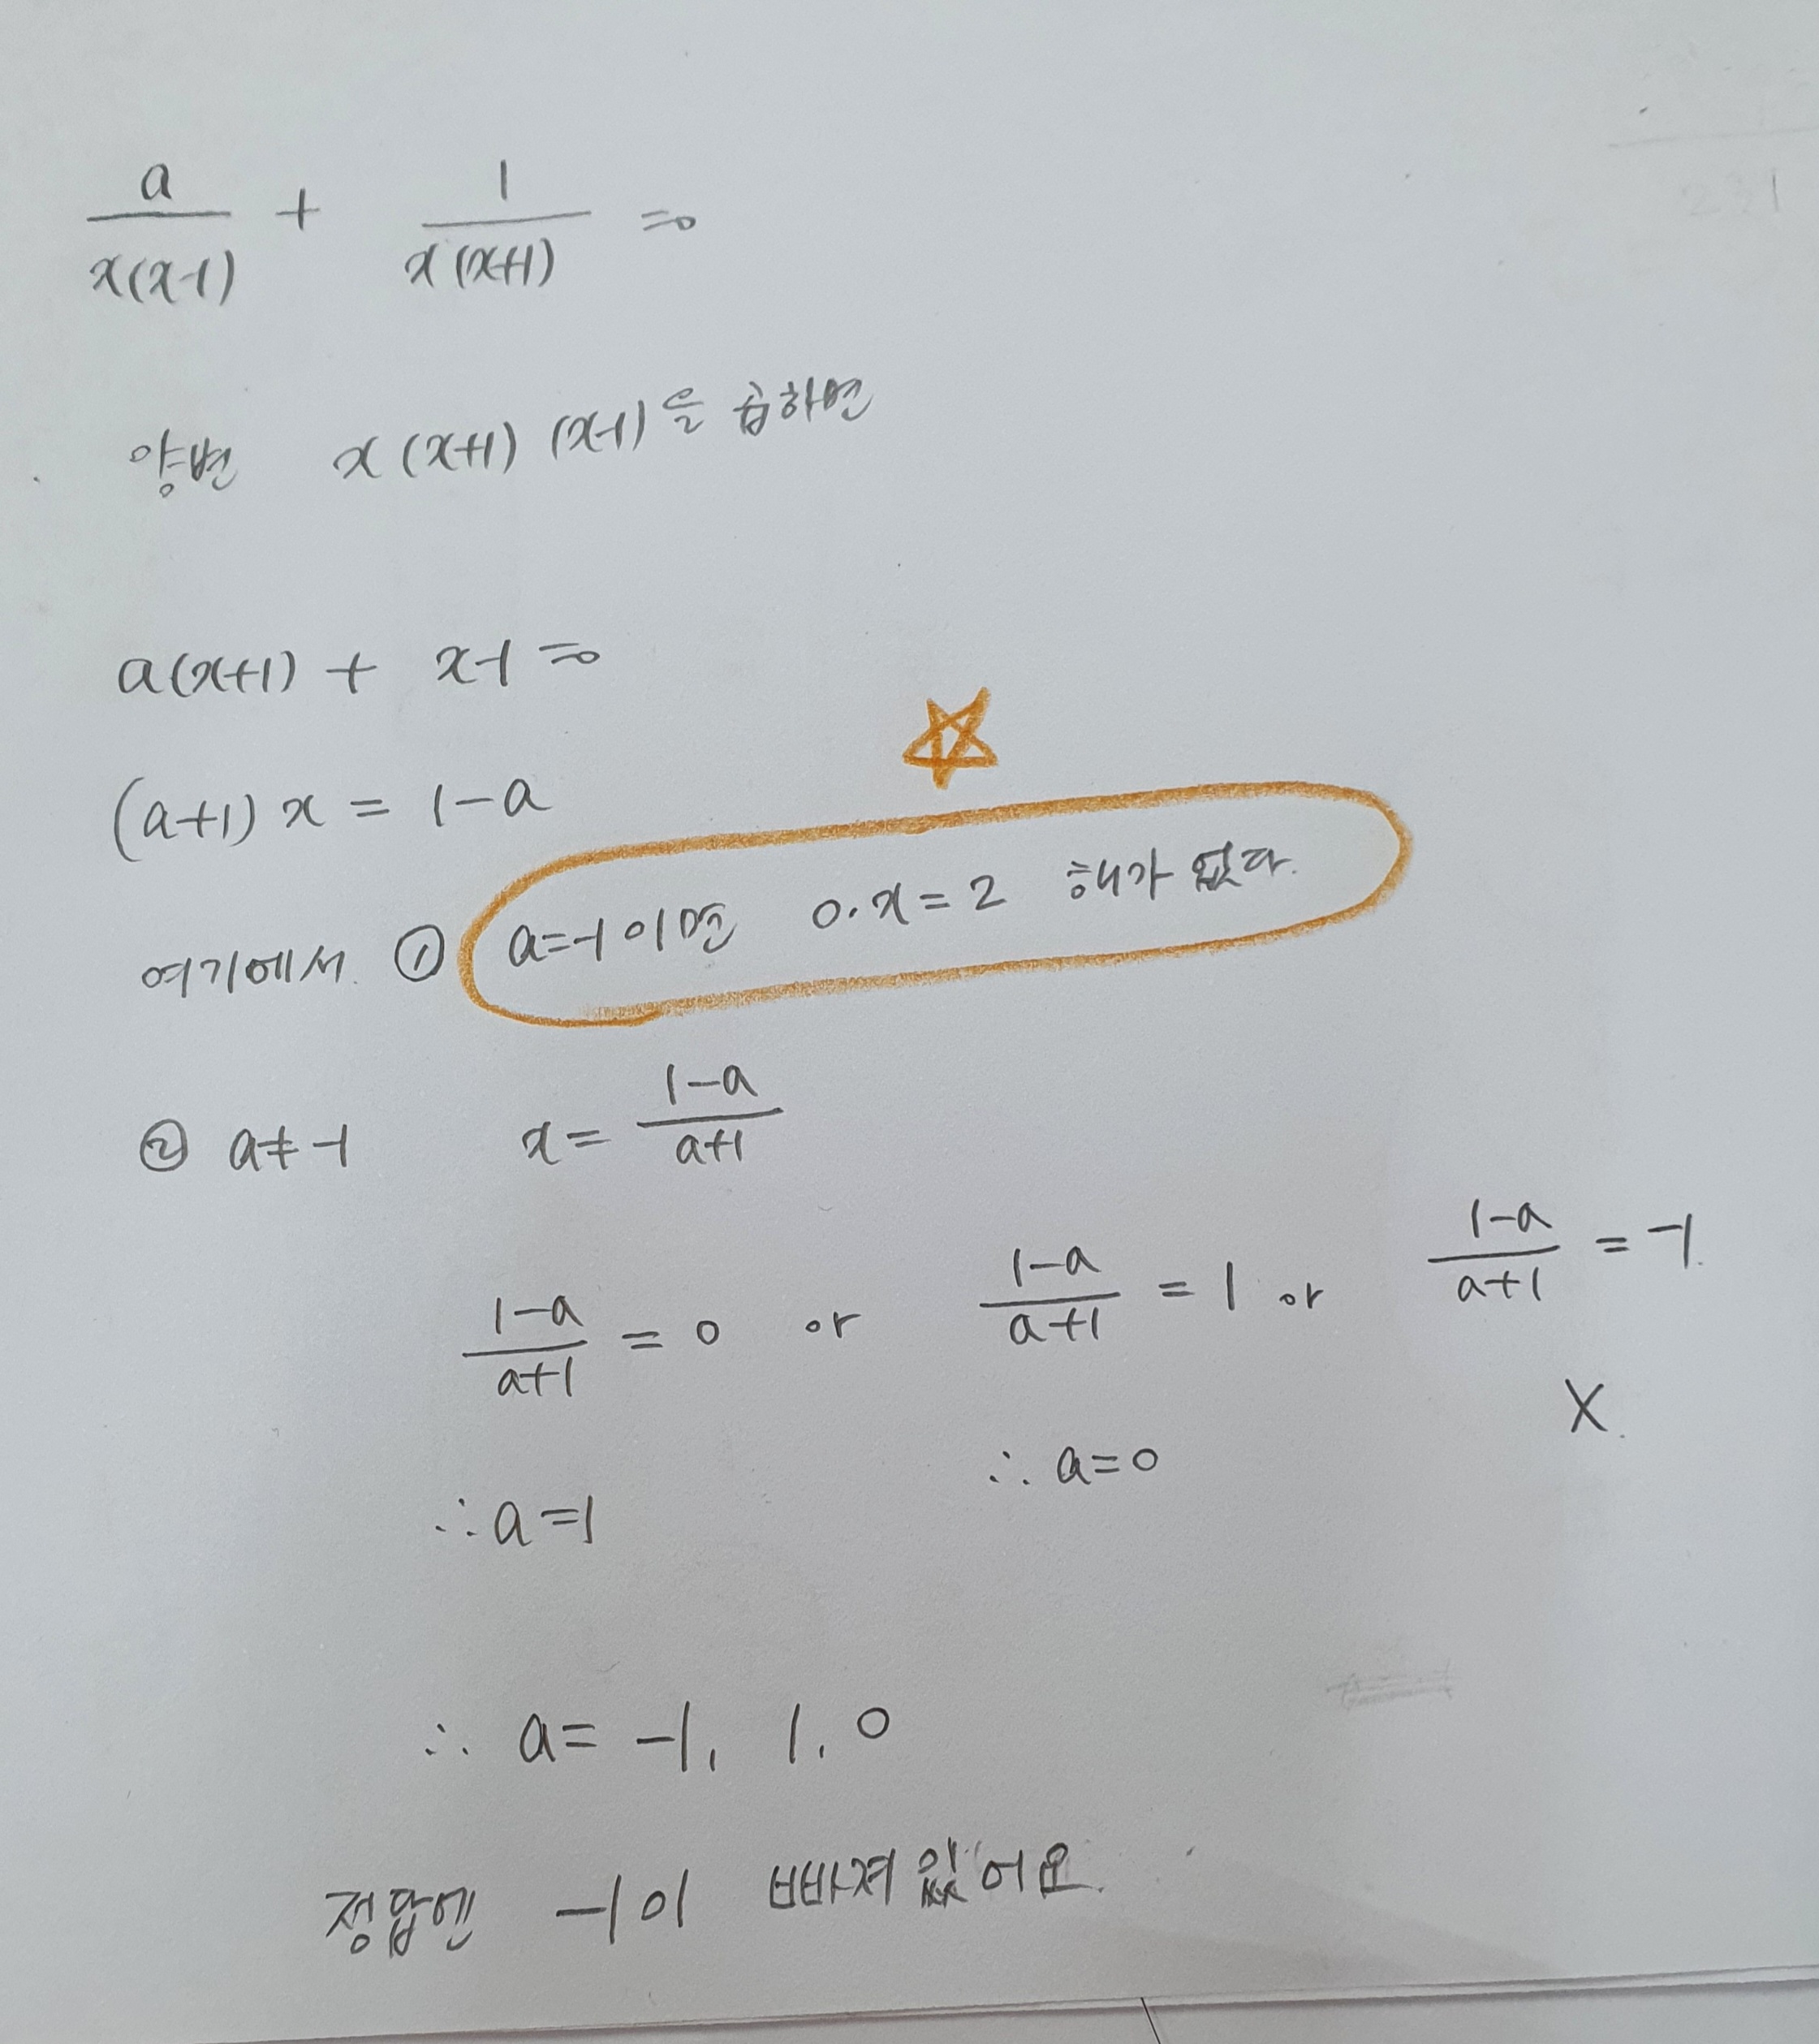 a/x(x-1) + 1/x(x+1) =0
양변 x(x+1)(x-1)을 곱하면
a(x+1) + x-1=0
(a+1)x = 1-a
여기에서. ① a=-1이면 0·x=2 해가 없다.
② a≠-1 x= 1-a/a+1
1-a/a+1 = 0 or 1-a/a+1 = 1 or 1-a/a+1 = -1.
∴a=1 ∴a=0 X.
∴ a= -1, 1, 0
정답엔 -1이 빠져있어요.